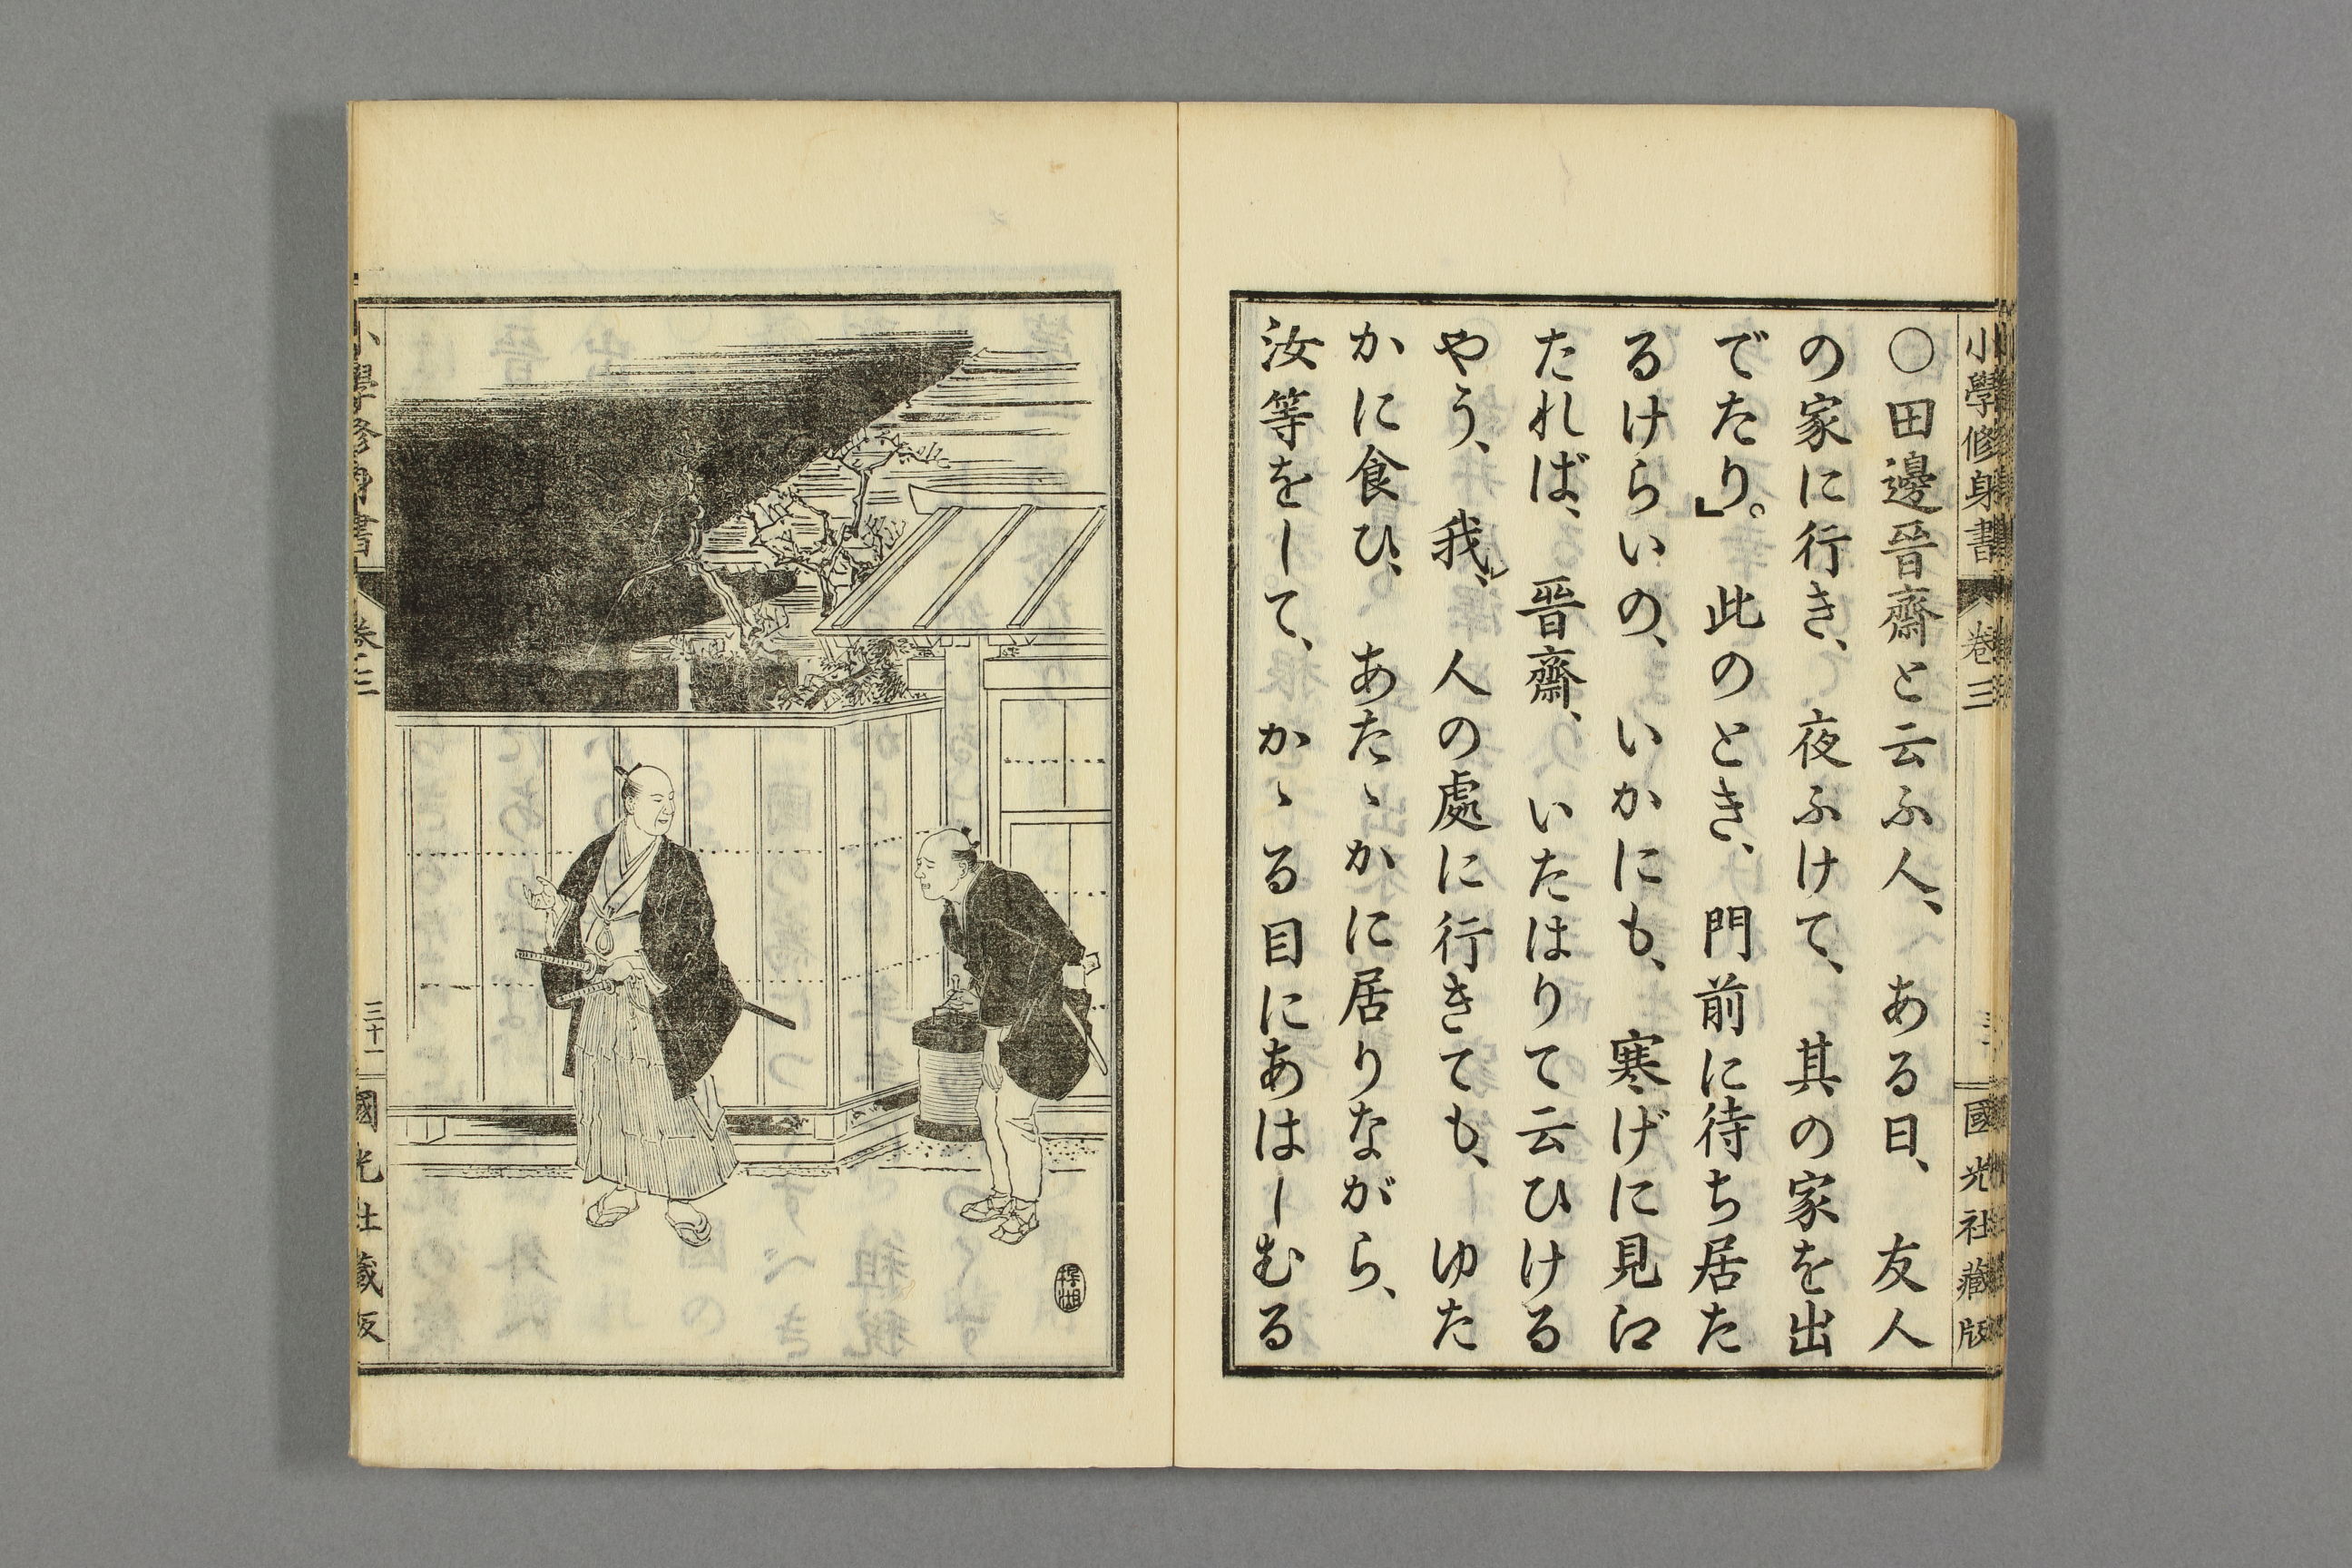 小學修身書 卷三 國光社藏版
○田邊晉齋と云ふ人、ある日、友人
の家に行き、夜ふけて、其の家を出
でたり。」此のとき、門前に待ち居た
るけらいの、いかにも、寒げに見江
たれば、晉齋、いたはりて云ひける
やう、我、人の處に行きても、ゆた
かに食ひ、あたゝかに居りながら、
汝等をして、かゝる目にあはしむる
小學修身書 卷三 三十一 國光社藏版